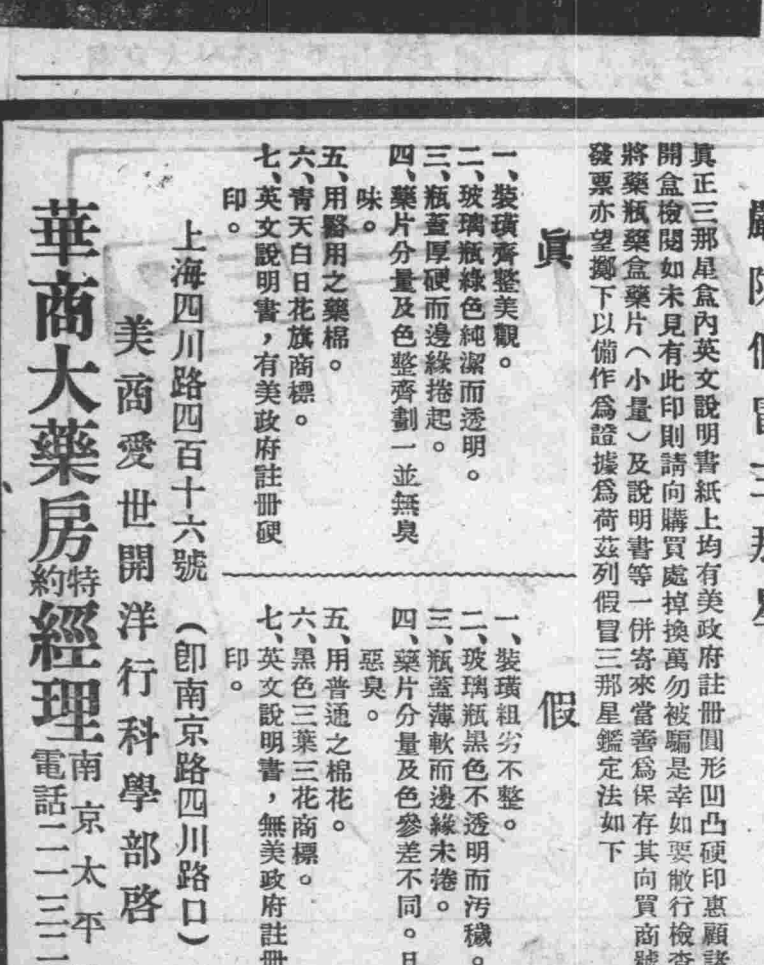 嚴防假冒三那星
眞正三那星盒內英文說明書紙上均有美政府註册圓形凹凸硬印惠顧諸
開盒檢閱如未見有此印則請向購買處掉換萬勿被騙是幸如要敝行檢查
將藥瓶藥盒藥片（小量）及說明書等一併寄來當善爲保存其向買商號
發票亦望擲下以備作爲證據爲荷茲列假冒三那星鑑定法如下
眞
一、裝璜齊整美觀。
二、玻璃瓶綠色純潔而透明。
三、瓶蓋厚硬而邊緣捲起。
四、藥片分量及色整齊劃一並無臭
味。
五、用醫用之藥棉。
六、靑天白日花旗商標。
七、英文說明書，有美政府註册硬
印。
假
一、裝璜粗劣不整。
二、玻璃瓶黑色不透明而汚穢。
三、瓶蓋薄軟而邊緣未捲。
四、藥片分量及色參差不同。且
惡臭。
五、用普通之棉花。
六、黑色三葉三花商標。
七、英文說明書，無美政府註册
印。
上海四川路四百十六號（卽南京路四川路口）
美商愛世開洋行科學部啓
華商大藥房特約經理南京太平
電話二一三二